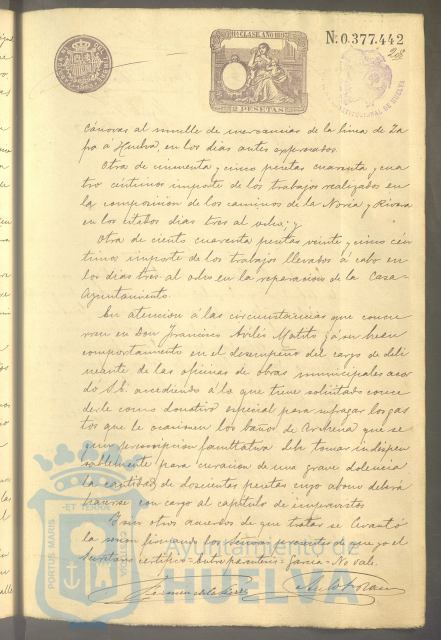 Nº 0.377.442
11ª CLASE AÑO 189
2 PESETAS
Cánovas al muelle de mercancias de la linea de Za
fra á Huelva, en los dias antes expresados.
Otra de cincuenta y cinco pesetas cuarenta y cua
tro centimos importe de los trabajos realizados en
la composición de los caminos de la Noria y Rivera
en los citados dias tres al ocho; y
Otra de ciento cuarenta pesetas veinte y cinco cén
timos importe de los trabajos llevados á cabo en
los dias tres al ocho en la reparación de la Casa-
Ayuntamiento.
En atencion á las circunstancias que concu
rren en Don Francisco Avilés Matito y á su buen
comportamiento en el desempeño del cargo de deli
neante de las oficinas de obras municipales acor
dó S.E. accediendo á lo que tiene solicitado conce
derle como donativo especial para sufragar los gas
tos que le ocasionen los baños de Archena que se
gun prescripcion facultativa debe tomar indispen
sablemente para curacion de una grave dolencia
la cantidad de doscientas pesetas cuyo abono deberá
hacerse con cargo al capitulo de imprevistos
Y sin otros acuerdos de que tratar se levantó
la sesion firmando los Señores presentes de que yo el
Secretario certifico = Entre parentesis = Garcia = No vale.
PORTUS MARIS
ET TERRÆ
Ayuntamiento de
HUELVA